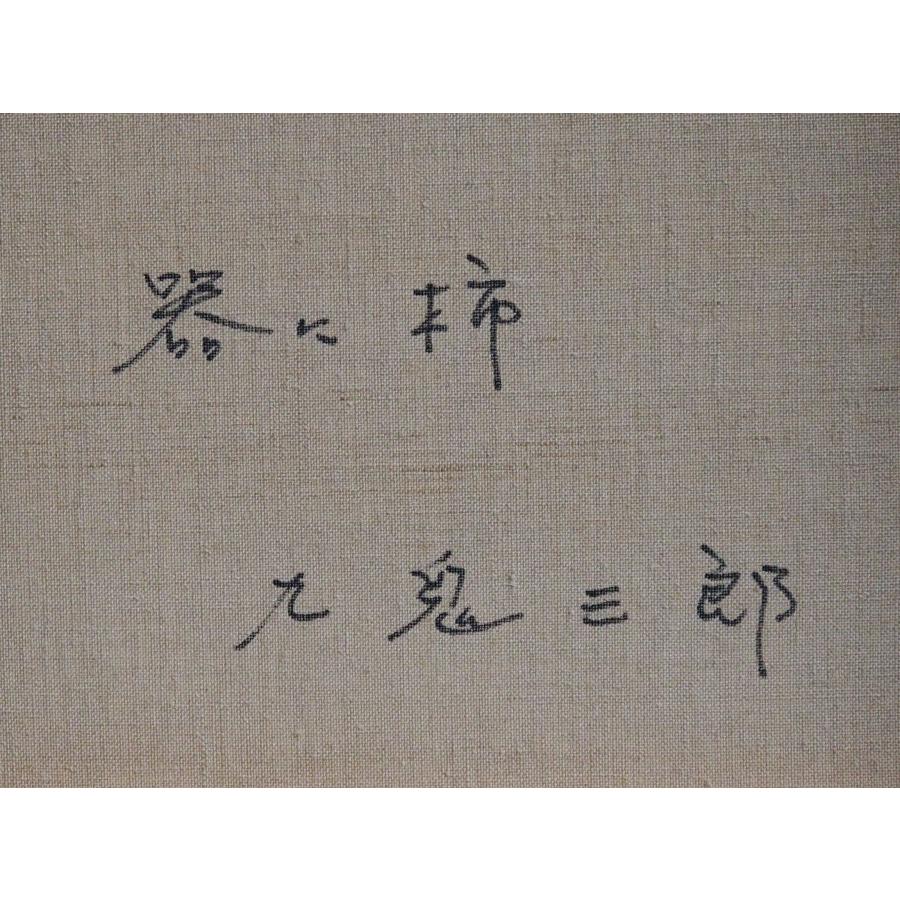 器に柿
九鬼三郎